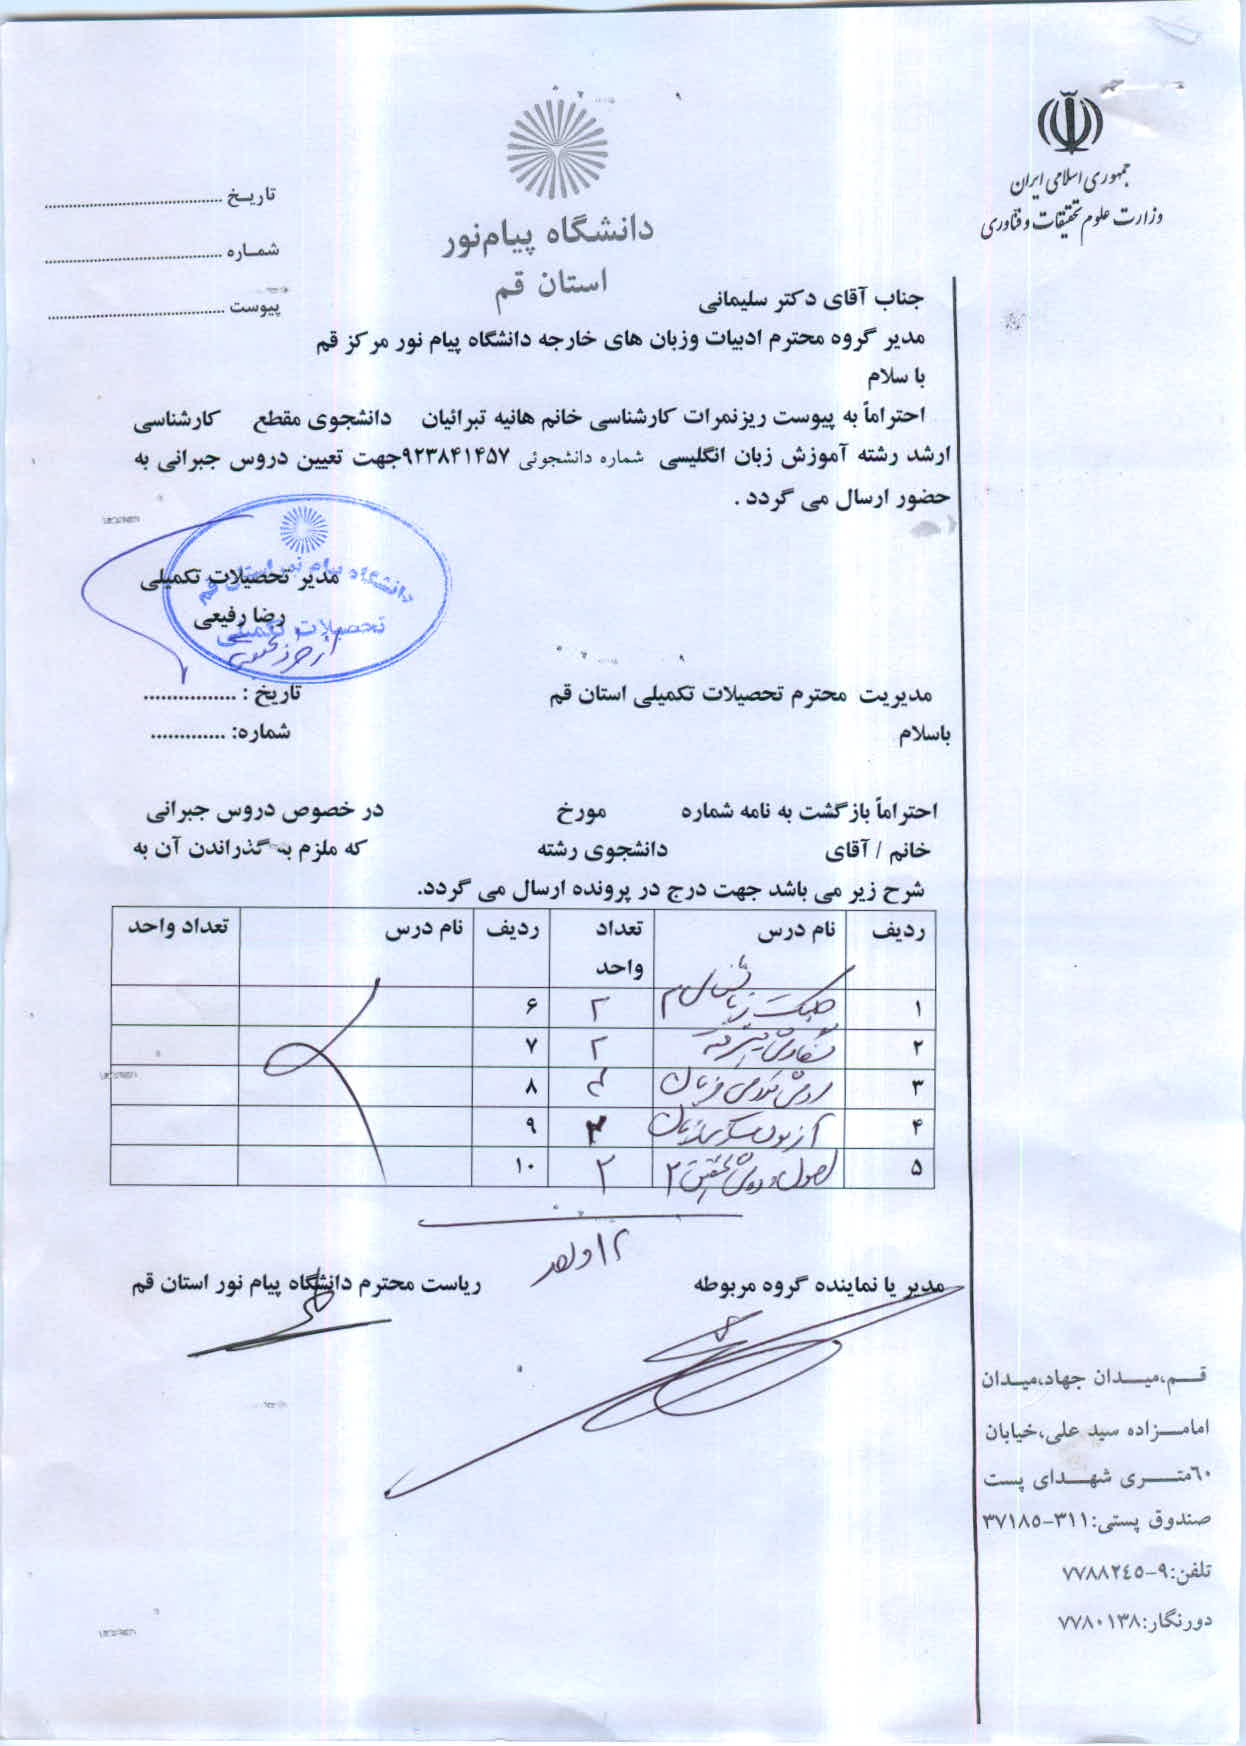 جمهوری اسلامی ایران
وزارت علوم تحقیقات و فناوری
دانشگاه پیام‌نور
استان قم
تاریـخ ........................................
شمـاره ........................................
پیوست ........................................
جناب آقای دکتر سلیمانی
مدیر گروه محترم ادبیات وزبان های خارجه دانشگاه پیام نور مرکز قم
با سلام
احتراماً به پیوست ریزنمرات کارشناسی خانم هانیه تبرائیان دانشجوی مقطع کارشناسی
ارشد رشته آموزش زبان انگلیسی شماره دانشجوئی ۹۲۳۸۴۱۴۵۷جهت تعیین دروس جبرانی به
حضور ارسال می گردد .
دانشگاه پیام نور استان قم
تحصیلات تکمیلی
مدیر تحصیلات تکمیلی
رضا رفیعی
مدیریت محترم تحصیلات تکمیلی استان قم
تاریخ : ................
باسلام
شماره: .............
احتراماً بازگشت به نامه شماره مورخ در خصوص دروس جبرانی
خانم / آقای دانشجوی رشته که ملزم به گذراندن آن به
شرح زیر می باشد جهت درج در پرونده ارسال می گردد.
ردیف نام درس تعداد واحد ردیف نام درس تعداد واحد
۱ ۲ ۶
۲ نگارش پیشرفته ۲ ۷
۳ روش تدریس زبان ۸
۴ آزمون سازی زبان ۹
۵ اصول و روش تحقیق ۲ ۲ ۱۰
۱۲ واحد
مدیر یا نماینده گروه مربوطه
ریاست محترم دانشگاه پیام نور استان قم
قـــم،میـــدان جهاد،میـدان
امامـــزاده سید علی،خیابان
۶۰متـــری شهــدای پست
صندوق پستی:۳۱۱-۳۷۱۸۵
تلفن:۹-۷۷۸۸۲٤٥
دورنگار:۷۷۸۰۱۳۸